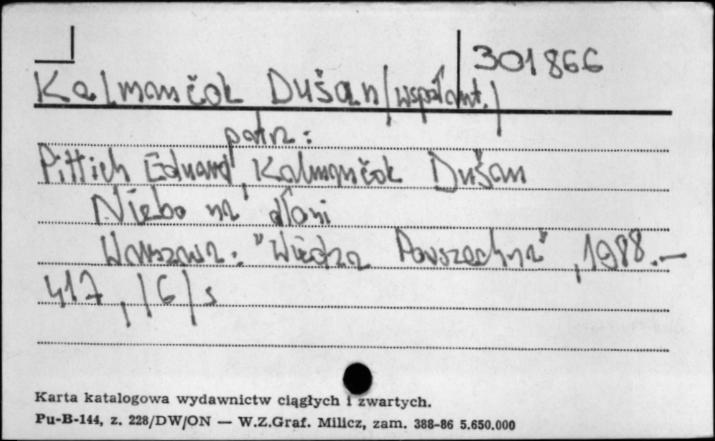 301866
Kalmančok Dušan /współaut./
patrz:
Pittich Eduard, Kalmančok Dušan
Niebo na dłoni
Warszawa: "Wiedza Powszechna", 1988.-
417, /6/ s
Karta katalogowa wydawnictw ciągłych i zwartych.
Pu-B-144, z. 228/DW/ON — W.Z.Graf. Milicz, zam. 388-86 5.650.000